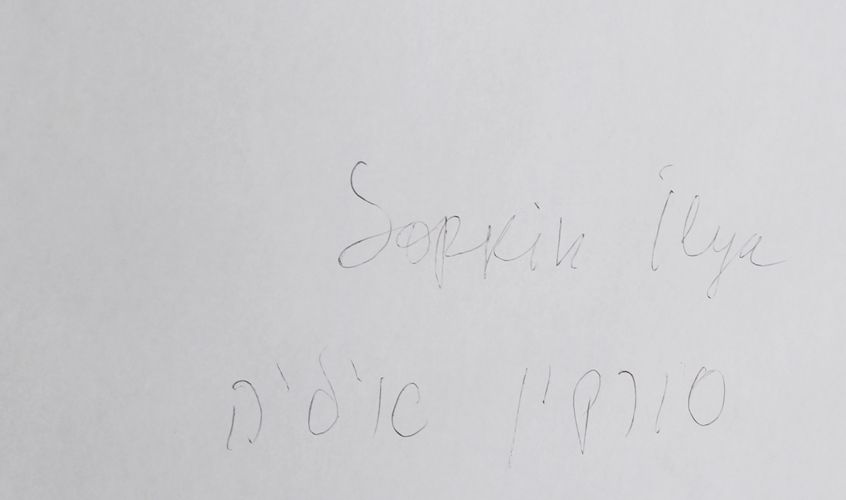 Sorkin Ilya
סורקין איליה